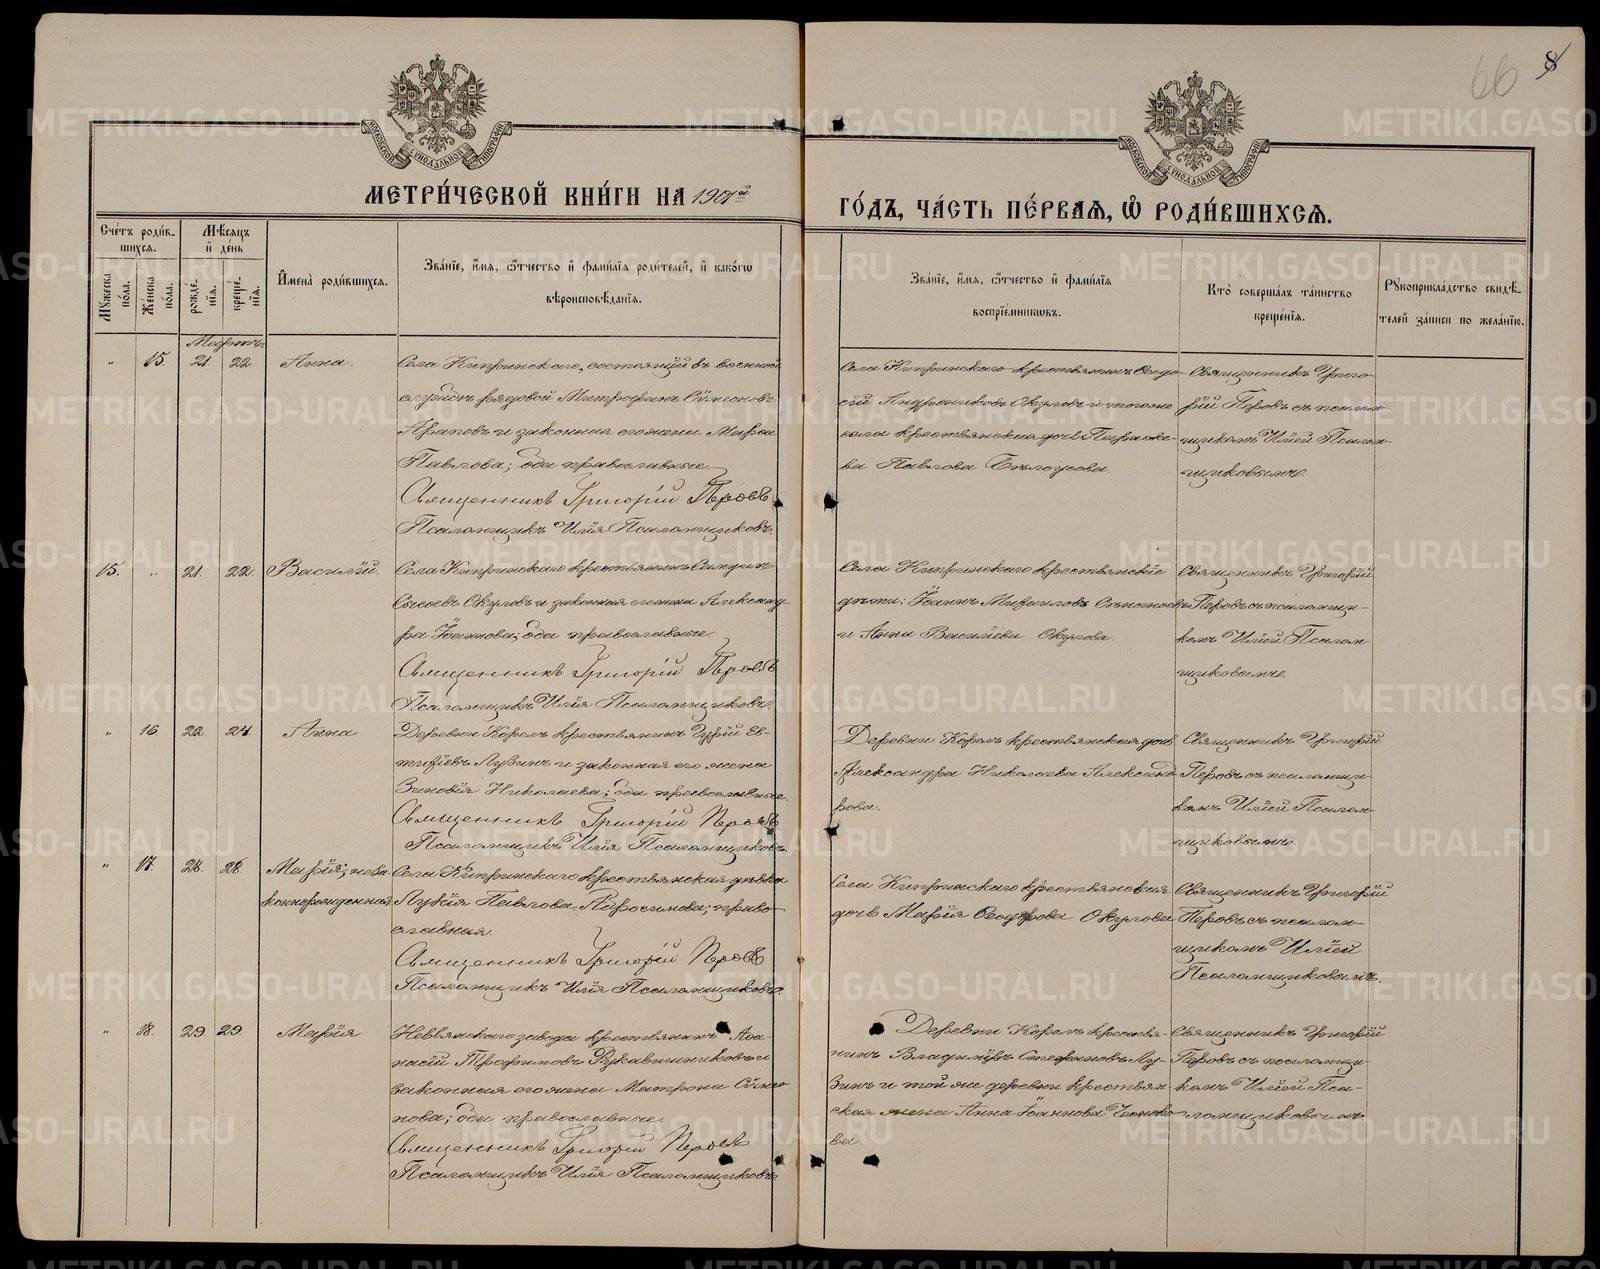 66
8
МОСКОВСКОЙ СѴНОДАЛЬНОЙ ТИПОГРАФІИ
МОСКОВСКОЙ СѴНОДАЛЬНОЙ ТИПОГРАФІИ
МЕТРИ́ЧЕСКОЙ КНИ́ГИ НА 1901й
ГО́ДЪ, ЧА́СТЬ ПЕ́РВАѦ, Ѽ РОДИ́ВШИХСѦ.
Сче́тъ роди́в-
шихсѧ.
Мꙋ́жеска по́ла.
Же́нска по́ла.
Мѣ́сѧцъ
и҆ де́нь
рожде́-
нїѧ.
креще́-
нїѧ.
И҆мена̀ роди́вшихсѧ.
Зва́нїе, и҆́мѧ, ѻ҆́тчество и҆ фами́лїѧ роди́телей, и҆ како́гѡ
вѣроисповѣ́данїѧ.
Зва́нїе, и҆́мѧ, ѻ҆́тчество и҆ фами́лїѧ
воспрїе́мникѡвъ.
Кто̀ соверша́лъ та́инство
креще́нїѧ.
Рꙋкоприкла́дство свидѣ́-
телей за́писи по жела́нїю.
Мартъ
„ 15. 21. 22. Анна.
Села Кипринскаго, состоящій въ военной
службѣ рядовой Митрофанъ Сѵмеоновъ
Араповъ и законная его жена Марѳа
Павлова; оба православные.
Священникъ Григорій Перовъ
Псаломщикъ Илія Псаломщиковъ.
Села Кипринскаго крестьянинъ Ѳеодо-
сій Андрониковъ Окуловъ и тогоже
села крестьянская дочь Параске-
ва Павлова Бѣлоусова.
Священникъ Григо-
рій Перовъ съ псалом-
щикомъ Иліей Псалом-
щиковымъ.
15. „ 21. 22. Василій.
Села Кипринскаго крестьянинъ
Сысоевъ Окуловъ и законная его жена Александ-
ра Іоаннова; оба православные.
Священникъ Григорій Перовъ
Псаломщикъ Илія Псаломщиковъ.
Села Кипринскаго крестьянскіе
дѣти: Іоаннъ Михаиловъ
и Анна Васильева Окулова.
Священникъ Григорій
Перовъ съ псаломщи-
комъ Иліей Псалом-
щиковымъ.
„ 16 22. 24 Анна
Деревни Корелъ крестьянинъ Гурій Ев-
тихіевъ Лузинъ и законная его жена
Зиновія Николаева; оба православные.
Священникъ Григорій Перовъ
Псаломщикъ Илія Псаломщиковъ.
Деревни Корелъ крестьянская дочь
Александра Николаева Александ-
рова.
Священникъ Григорій
Перовъ съ псаломщи-
комъ Иліей Псалом-
щиковымъ.
„ 17. 28. 28. Марія; неза-
коннорожденная.
Села Кипринскаго крестьянская дѣвка
Лукія Павлова Анфосимова; право-
славная.
Священникъ Григорій Перовъ
Псаломщикъ Илія Псаломщиковъ.
Села Кипринскаго крестьянская
дочь Марія Ѳеодорова Окулова
Священникъ Григорій
Перовъ съ псалом-
щикомъ Иліей
Псаломщиковымъ.
„ 18. 29 29 Марія
Невьянскаго завода крестьянинъ Аѳа-
насій Трофимовъ Рукавишниковъ и
законная его жена Матрона Сѵмео-
нова; оба православные.
Священникъ Григорій Перовъ
Псаломщикъ Илія Псаломщиковъ.
Деревни Корелъ крестья-
нинъ Владиміръ Стефановъ Лу-
зинъ и той же деревни крестьян-
ская жена Анна Іоаннова
ва.
Священникъ Григорій
Перовъ съ псаломщи-
комъ Иліей Пса-
ломщиковымъ.
METRIKI.GASO-URAL.RU